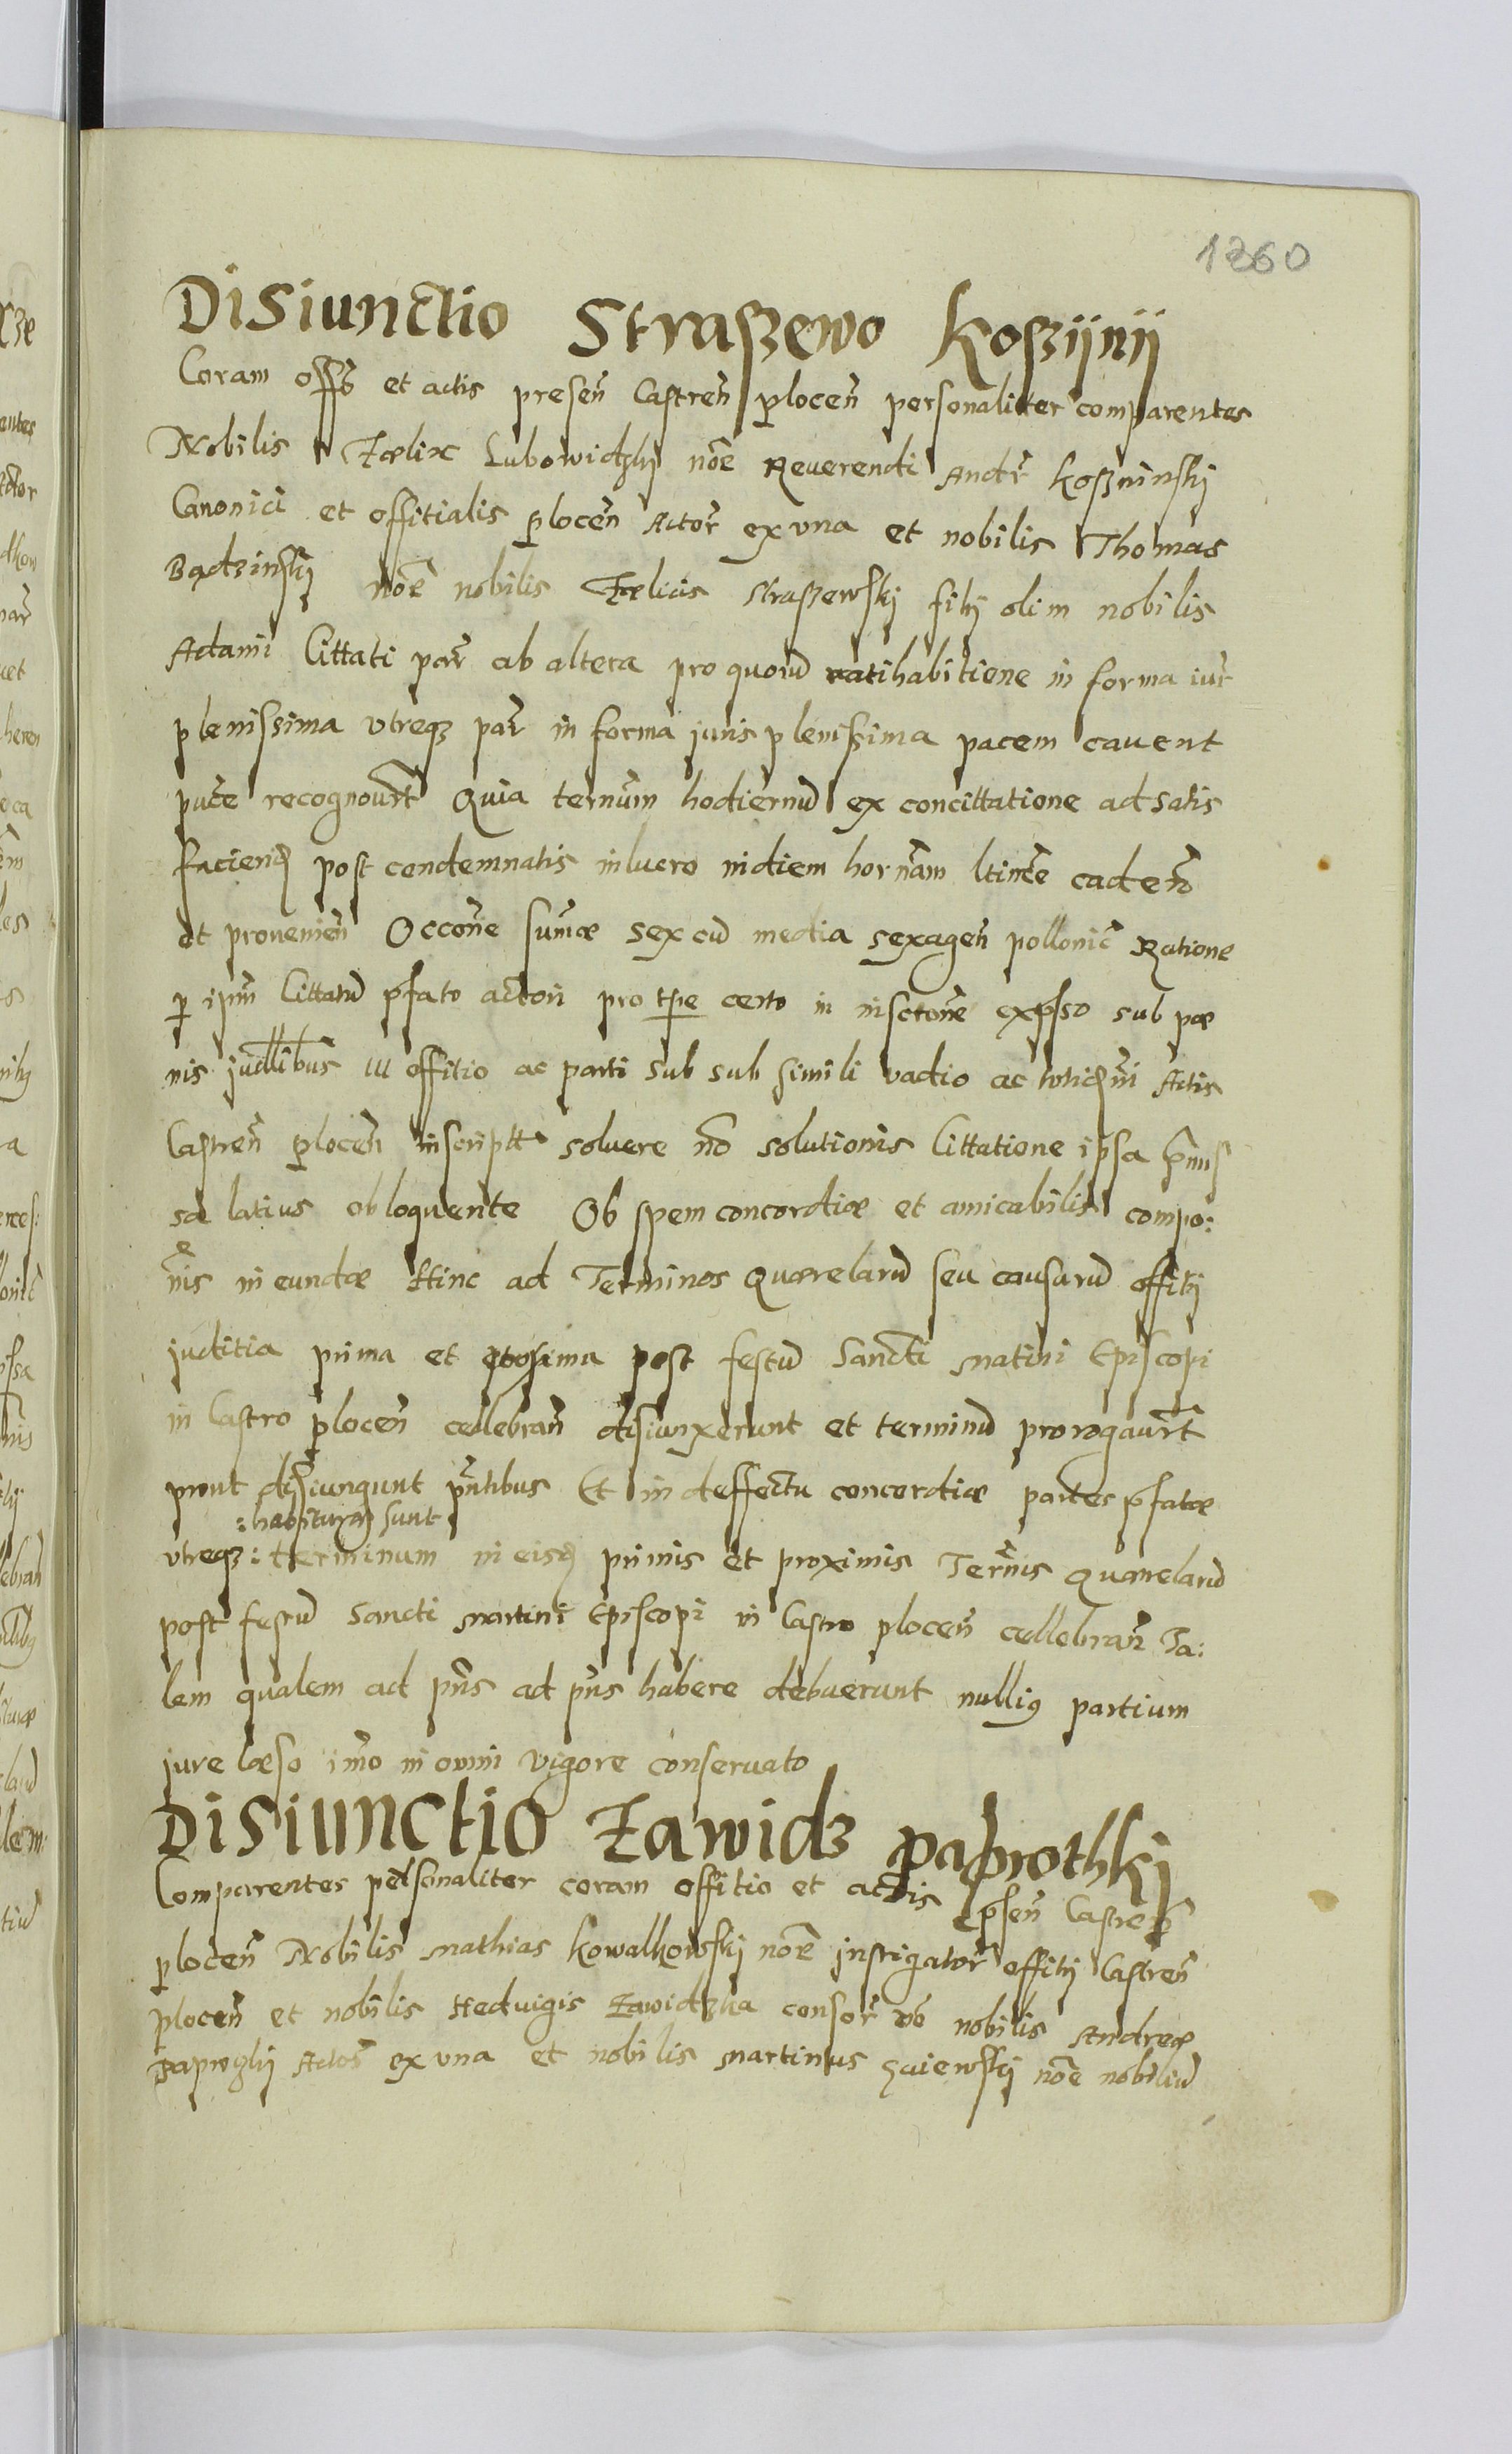 1260
Disiunctio Straszewo Koszÿnÿ
Coram offo et actis presen̄ Castren̄ plocen̄ personaliter comparentes
Nobilis Fœlix Lubowidzkj noē Reuerendi Andr̄ Koszninskj
Canonici et offitialis plocen̄ Actor̄ ex vna et nobilis Thomas
Bądzinskj noē nobilis Fœlicis Straszewskj filij olim nobilis
Adami Cittati par̄ ab altera pro quorū ratihabitione in forma iur̄
plenissima vtreqʒ par̄ in forma juris plenissima pacem cauent
puce recognouer̄t Quia ternūm hodiernū ex concittatione ad satis
faciend post condemnatis in lucro in diem hor nam ltime caden̄
et prouenien̄ Occone sumæ sex cū media sexagen̄ pollonic̄ Ratione
p ipm̄ Cittatū pfato actori pro tpe certo in insctone expsso sub pœ
nis judllibus III offitio ac parti sub sub simili vadio ac Actis
Castren̄ plocen̄ inscriptt solvere no solutionis Cittatione ipsa pmis
sa latius obloquente Ob spem concordiæ et amicabilis compo:
nis in eundæ Hinc ad Terminos Quærelarū seu causarū offitij
juditia prima et proxima post festū Sancti Matini Episcopi
in Castro plocen̄ cellebran̄ disiunxerunt et terminū prorogauer̄t
prout disiungunt pn̄tibus Et in deffectu concordiæ partes pfatæ
: habituræ sunt
vtreqʒ : terminum in eisd primis et proximis Term̄is Quærelarū
post festū Sancti Martini Episcopi in Castro plocen̄ cellebran̄ Ta:
lem qualem ad pn̄s ad pn̄s habere debuerunt nulliq partium
jure læso imo in omni vigore conseruato
Disiunctio Zawidz paprothkj
Comparentes personaliter coram offitio et actis psen̄ Castren̄
plocen̄ Nobilis Mathias Kowalkowskj noē instigator̄ offitij Castren̄
plocen̄ et nobilis Heduigis Zawidzka consor̄ nobilis Andreæ
paprozkj Actor̄ ex vna et nobilis Martinus noē nobiliū